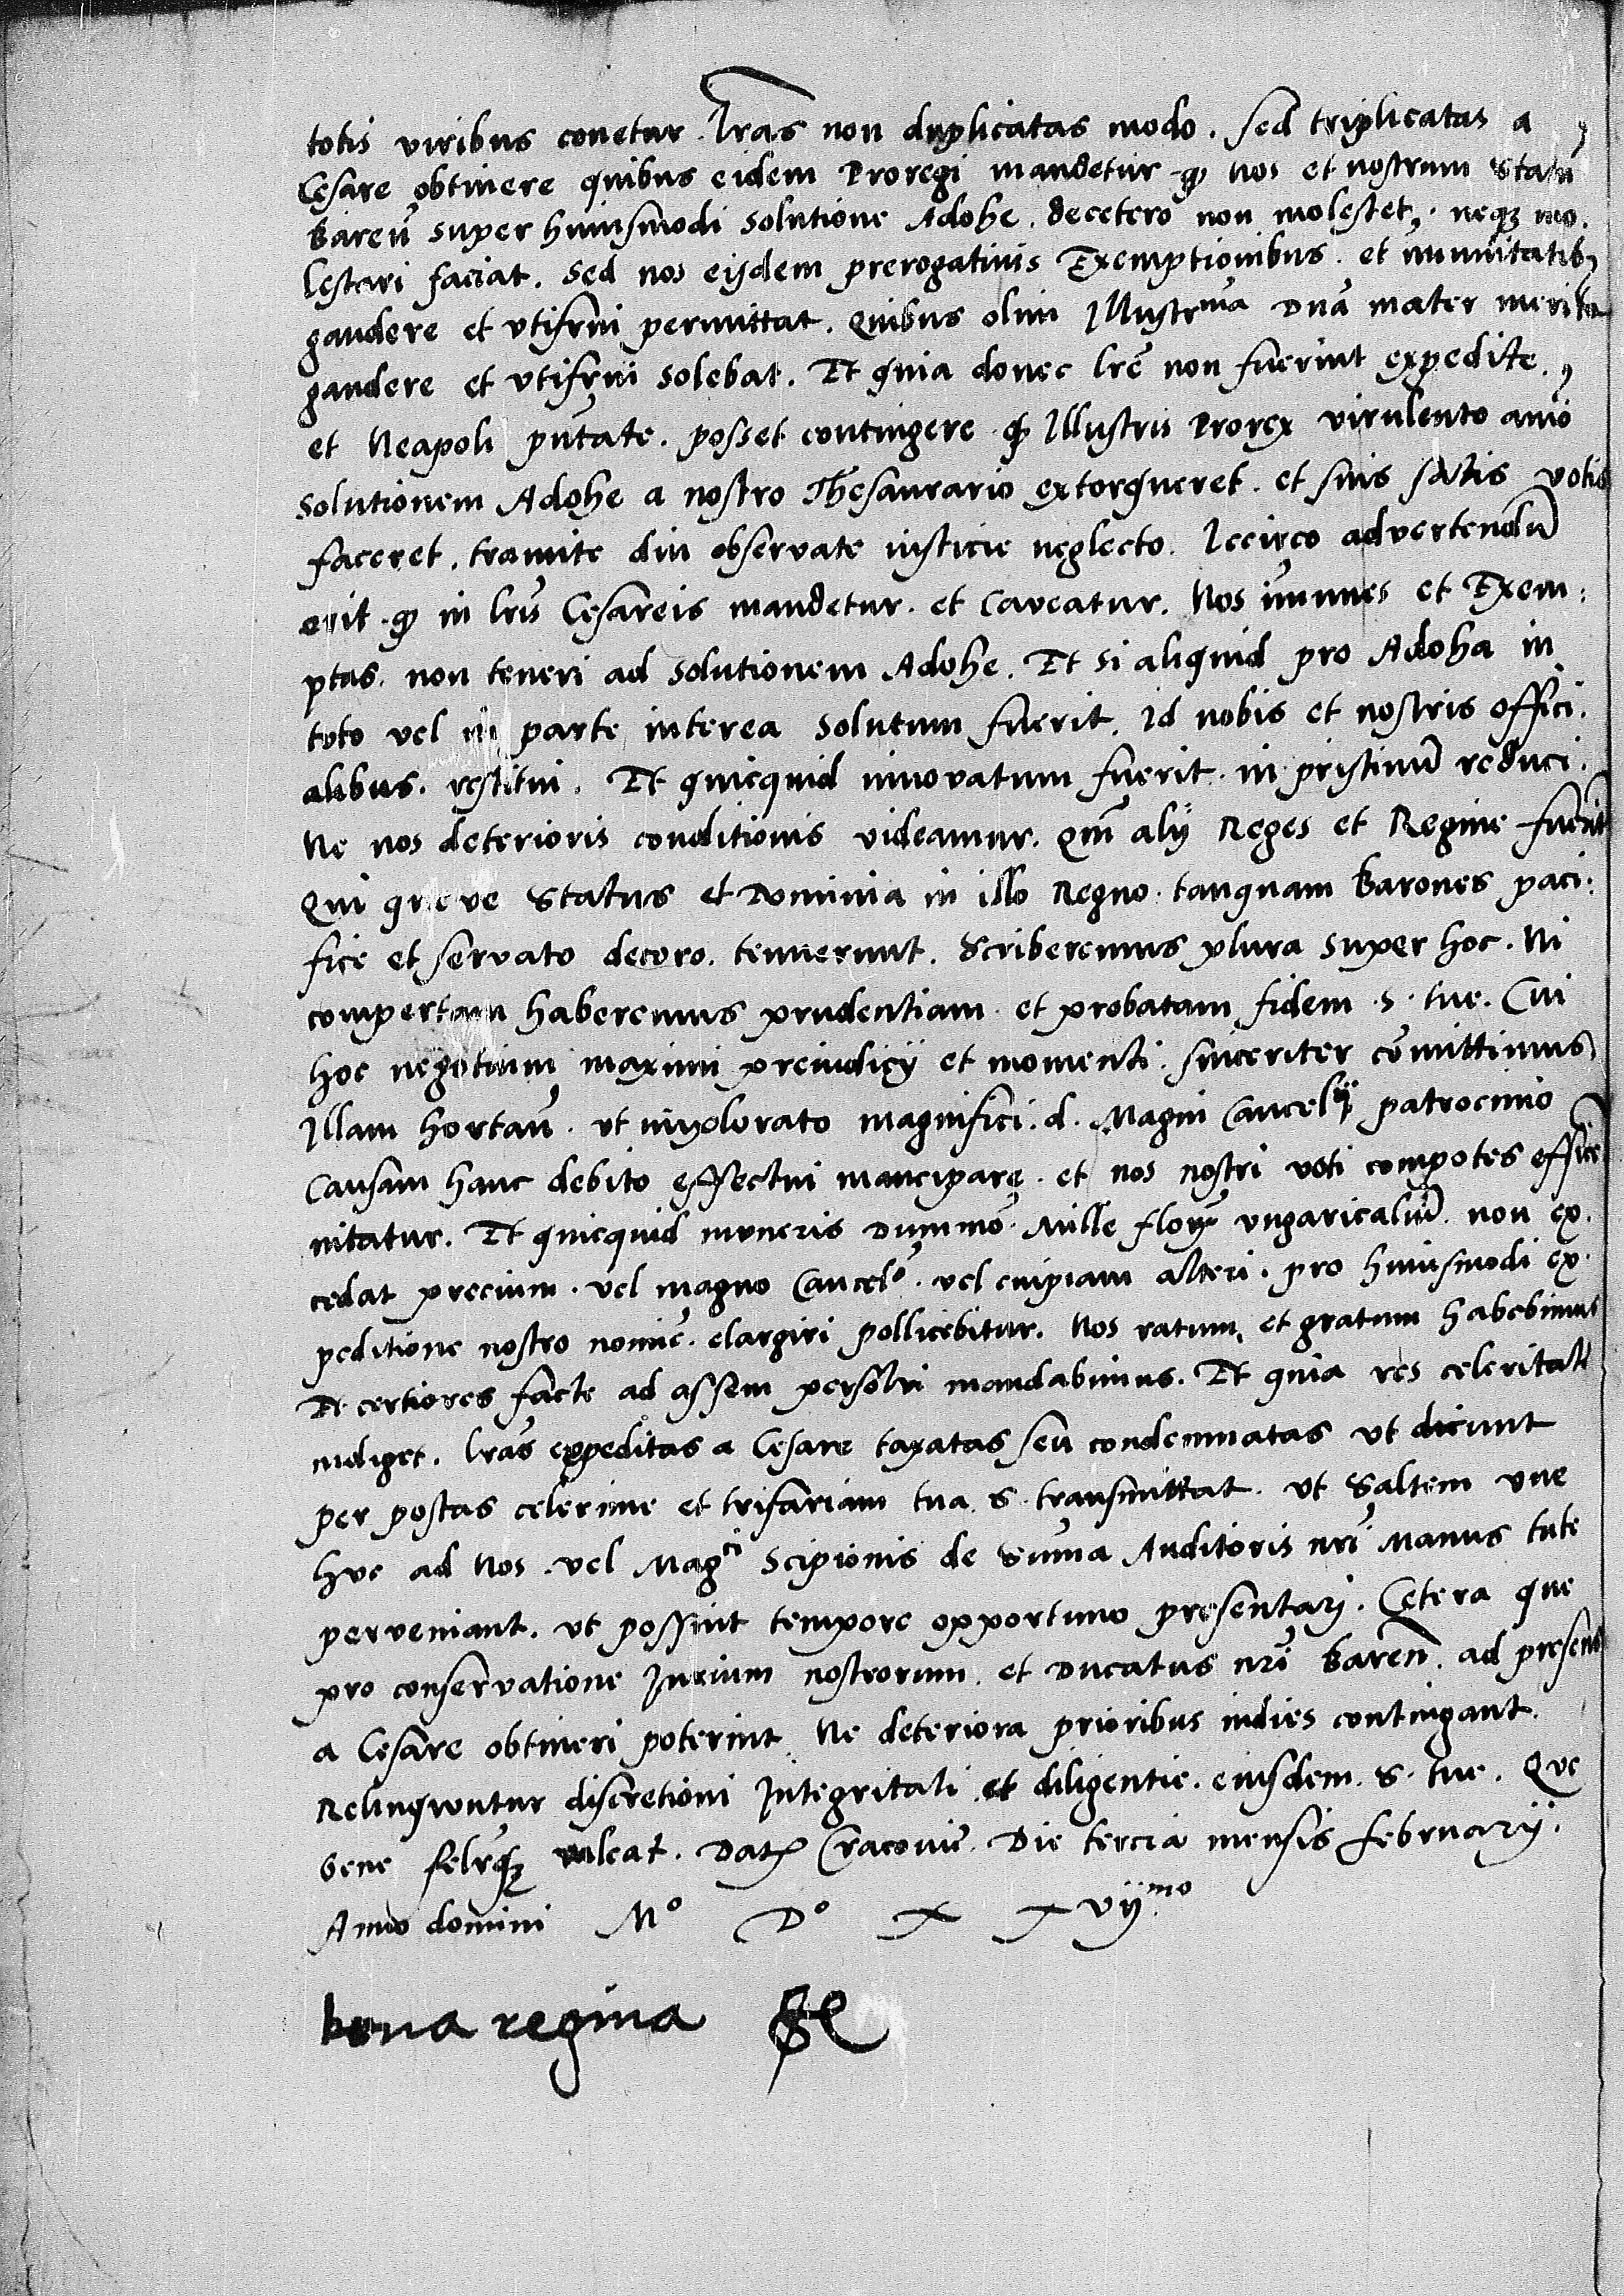 totis viribus conetur. lr̃as non duplicatas modo. sed triplicatas a
Cesare obtinere quibus eidem Proregi mandetur ꝙ nos et nostrum Statũ
bareñ super huiusmodi solutione Adohe. decetero non molestet. neqꝫ mo.
lestari faciat. sed nos eisdem prerogativis Exemptionibus. et im̃unitatibꝫ
gaudere et utifrui permittat. quibus olim Illustrma Dña mater merito
gaudere et utifrui solebat. Et quia donec lr̃e non fuerint expedite.
et Neapoli pñtate. posset contingere ꝙ Illustris Prorex virulento aĩo
solutionem Adohe a nostro Thesaurario extorqueret. et suis satis votis
faceret. tramite diu observate iusticie neglecto. Iccirco advertendũ
erit ꝙ in lr̃is Cesareis mandetur. et caveatur. Nos im̃unes et Exem:
ptas. non teneri ad solutionem Adohe. Et si aliquid pro Adoha in
toto vel in parte interea solutum fuerit. id nobis et nostris offici.
alibus. restitui. Et quicquid innovatum fuerit. in pristinũ reduci.
Ne nos deterioris conditionis videamur. qm̃ alij Reges et Regine fuerũt
Qui Status et Dominia in illo Regno. tanquam barones paci:
fice et servato decoro. tenuerunt. Scriberemus plura super hoc. Ni
compertam haberemus prudentiam et probatam fidem .s. tue. Cui
hoc negotium maximi preiudicij et momenti. sinceriter com̃ittimus
Illam hortañ. ut implorato magnifici. d. Magni Cancelrij patrocinio
causam hanc debito effectui mancipare. et nos nostri voti compotes efficere
nitatur. Et quicquid muneris Dummõ. Mille flor̃ ungaricaliũ non ex.
cedat precium. vel magno Cancelo. vel cuipiam alteri. pro huiusmodi ex.
peditione nostro nomie. elargiri pollicebitur. Nos ratum et gratum habebimus
Et certiores facte ad assem persolvi mandabimus. Et quia res celeritate
indiget. lr̃as expeditas a Cesare taxatas seu condemnatas ut dicunt
per postas celerime et trifariam tua .s. transmittat. ut saltem une
huc ad Nos. vel Magci Scipionis de Sum̃a Auditoris nr̃i Manus tute
perveniant. ut possint tempore opportuno presentari. Cetera que
pro conservatione Jurium nostrorum. et Ducatus nr̃i bareñ. ad presens
a Cesare obtineri poterint Ne deteriora prioribus indies contingant.
Relinquntur discretioni Integritati et diligentie. eiusdem .s. tue. Que
bene valeat. Datꝫ Cracovie. Die tercia mensis februarij.
Anno domini Mo Do X X vijmo
bona regina